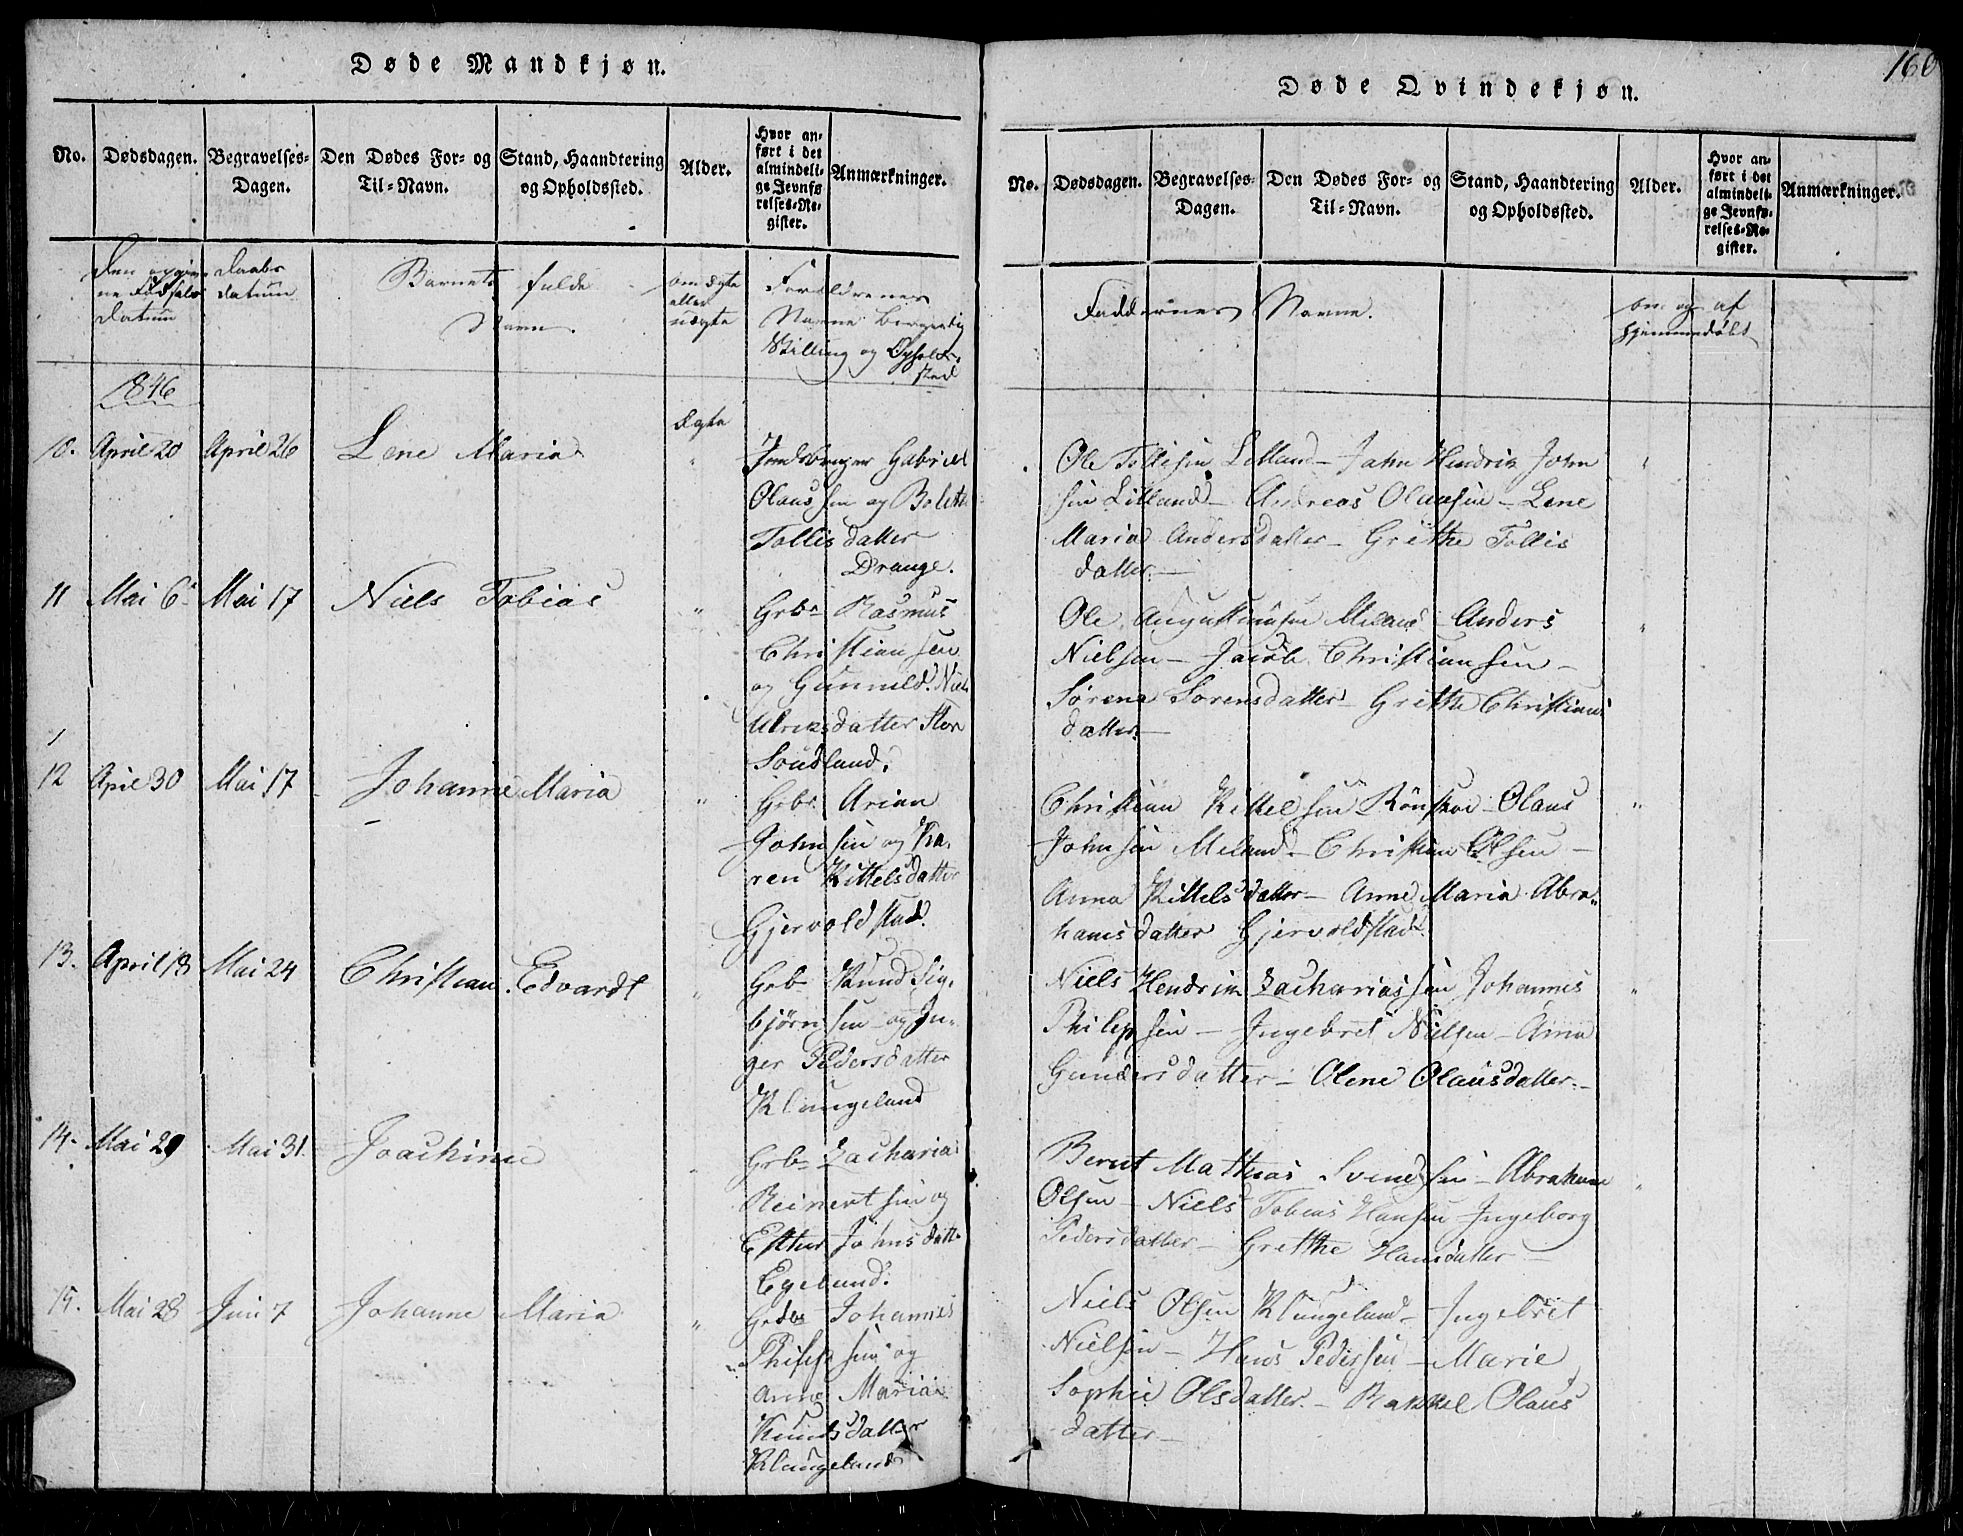 Døde Mandkjøn.
No. Dødsdagen. Begravelses-Dagen. Den Dødes For- og Til-Navn. Stand, Haandtering og Opholdssted. Alder. Hvor anført i det almindelige Jevnførelses-Register. Anmærkninger.
Den opgivne Fødsels datum Daabs datum Barnets fulde Navn. om ægte eller uægte Forældrenes Navne Borgerlig Stilling og Opholdssted
1846
10. April 20 April 26 Lene Maria Ægte Jordbruger Gabriel
Olaussen og Bolette
Tollisdatter
Drange.
11 Mai 6 Mai 17 Niels Tobias " Grbr Rasmus
Christiansen
og Gunneld Niels
Ulriksdatter Stor
Soudland.
12 Apil 30 Mai 17 Johanne Maria " Grbr. Arian
Johnsen og Ka-
ren Kittelsdatter
Gjervoldstad.
13. April 18 Mai 24 Christian Edvardt " Grb Knud Sig-
bjørnsen og In-
ger Pedersdatter
Klungeland
14. Mai 29 Mai 31. Joachime Grb Zacharias
Reinertsen og
Ester Johnsdatt.
Egeland.
15. Mai 28 Juni 7 Johanne Maria " Grbr Johannes
Philipsen og
Anne Maria
Knudsdatter
Klungeland
160
Døde Qvindekjøn.
No. Dødsdagen. Begravelses-Dagen. Den Dødes For- og Til-Navn. Stand, Haandtering og Opholdssted. Alder. Hvor anført i det almindelige Jevnførelses-Register. Anmærkninger.
Faddernes Navne. om og af hjemmedøbt
Ole Tollisen Lilland - John Hendrik John
sen Lilland - Andreas Olausen - Lene
Maria Andersdatter - Grethe Tollis
datter. -
Ole Augustinusen Meland - Anders "
Nielsen - Jacob Christiansen -
Sørene Sørensdatter - Grethe Christians
datter. -
Christian Kittelsen Rønstoe - Olaus "
Johnsen Meland - Christian Olsen -
Anna Kittelsdatter - Anne Maria Abra-
hamsdatter Gjervoldstad.
Niels Hendrik Zachariassen Johannes "
Philipsen - Ingebret Nielsen - Anna
Gundersdatter - Olene Olausdatter. -
Bernt Mathias Svendsen - Abraham "
Olsen - Niels Tobias Hansen - Ingeborg
Pedersdatter - Grethe Hansdatter -
Niels Olsen Klungeland - Ingebret
Nielsen - Hans Pedersen - Marie
Sophie Olsdatter. - Rakkel Olaus
datter -